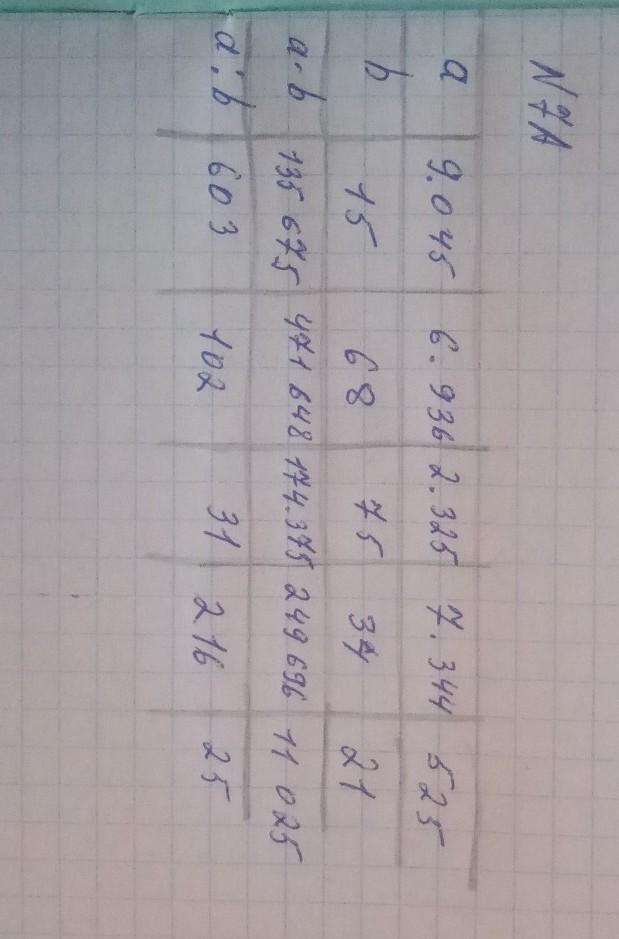 N7A
a 9.045 6.936 2.325 7.344 525
b 15 68 75 34 21
a·b 135 675 471 648 174.375 249 696 11 025
a:b 603 102 31 216 25